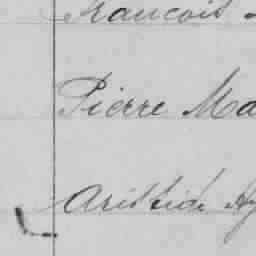 Francois
Pierre Ma
Aristide Hy